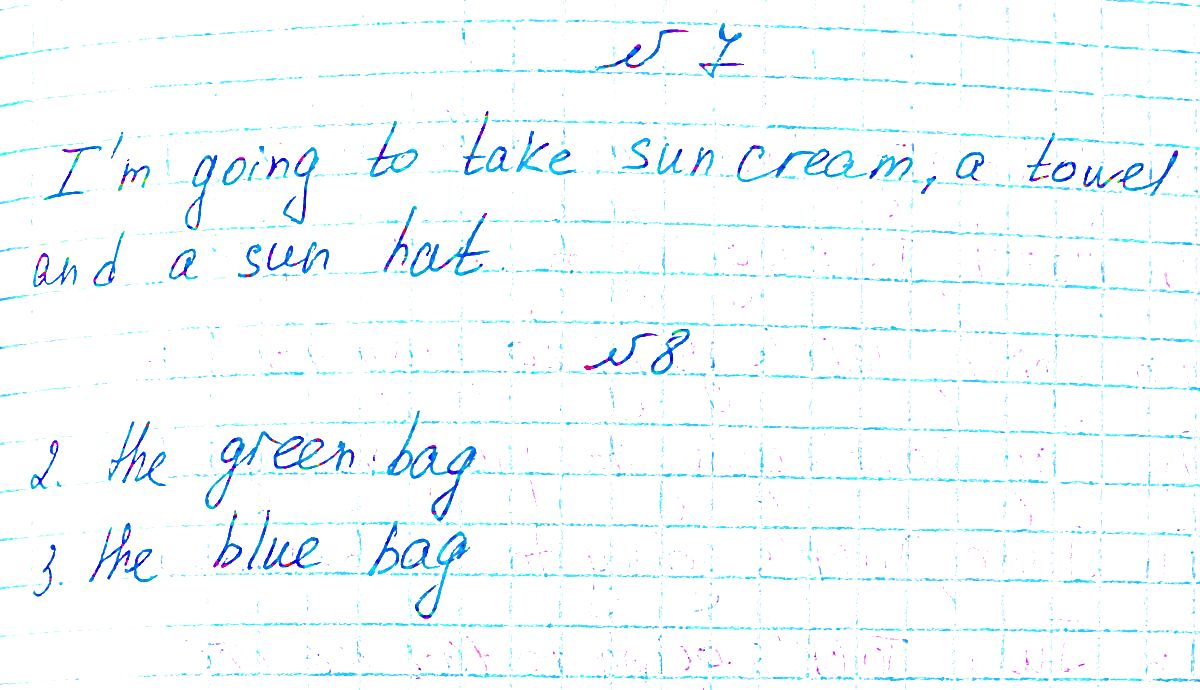 № 7
I'm going to take sun cream, a towel
and a sun hat.
№ 8
2. the green bag
3. the blue bag